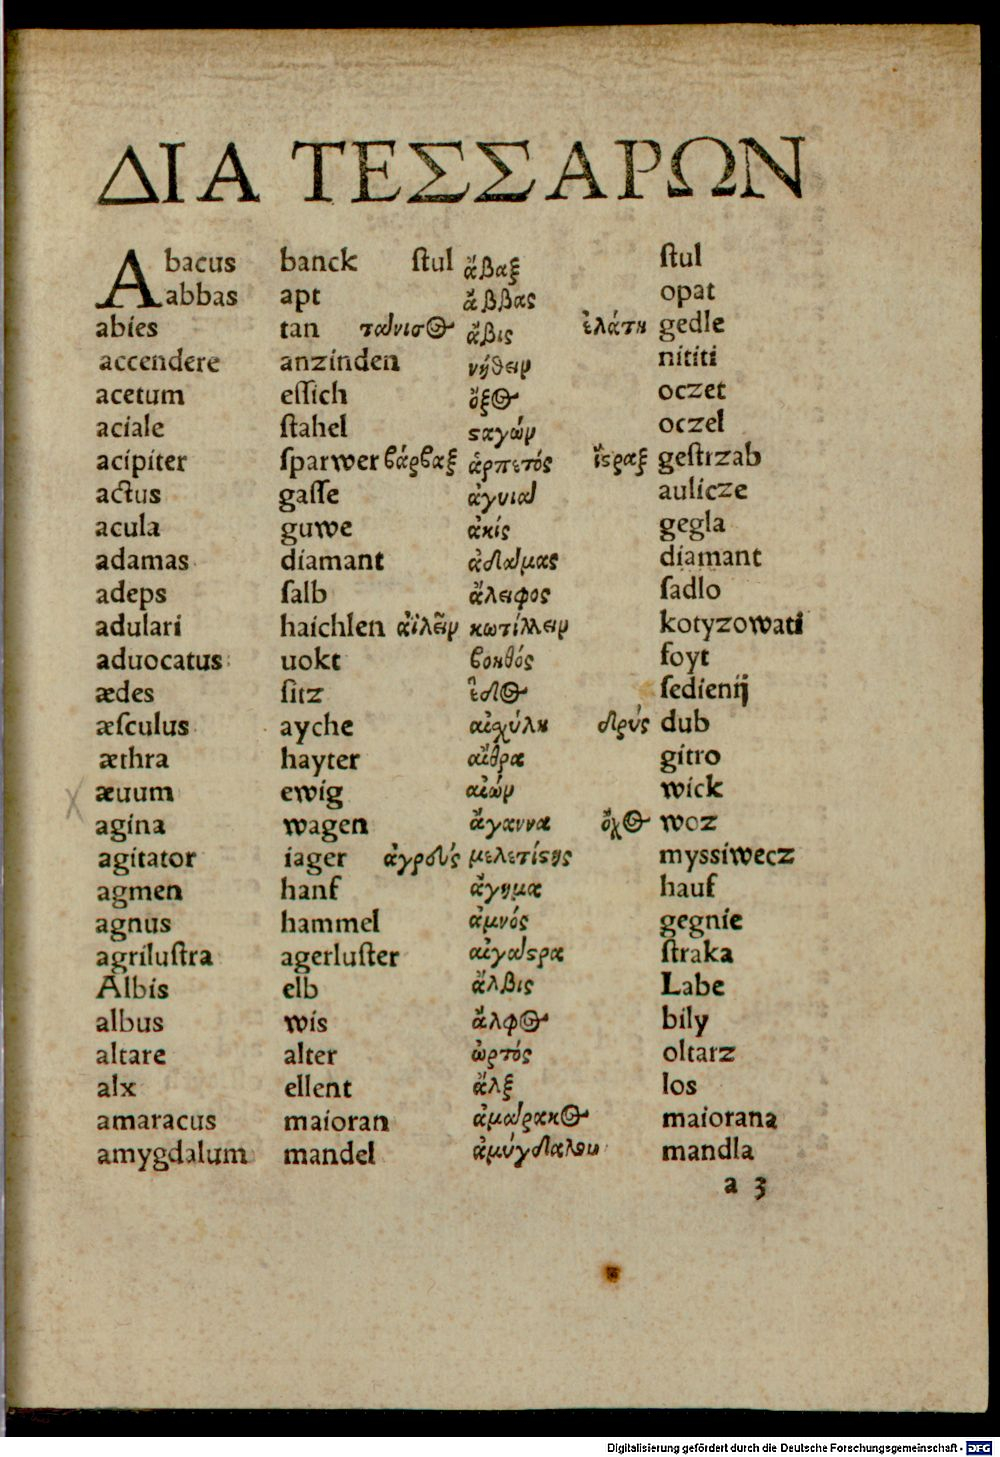 ΔΙΑ ΤΕΣΣΑΡΩΝ
Abacus banck ſtul ἄβαξ ſtul
abbas apt ἄββας opat
abies tan ταίνισος ἄβις ἐλάτη gedle
accendere anzinden νήθειν nititi
acetum eſſich ὄξος oczet
aciale ſtahel ςαγών oczel
acipiter ſparwer βάρβαξ ἁρπετός ἵεραξ geſtrzab
actus gaſſe ἀγυιαί aulicze
acula guwe ἀκίς gegla
adamas diamant ἀδάμας diamant
adeps ſalb ἄλειφος ſadlo
adulari haichlen ἀϊλεῖν κωτίλλειν kotyzowati
aduocatus uokt βοηθός foyt
ædes ſitz ἶδος ſedienij
æſculus ayche αἰσχύλη δρύς dub
æthra hayter αἴθρα gitro
æuum ewig αἰών wick
agina wagen ἄγαννα ὄχος woz
agitator iager ἀγρεύς μελετίςης myssiwecz
agmen hanf ἄγημα hauf
agnus hammel ἀμνός gegnie
agriluſtra agerluſter αἰγαίςρα ſtraka
Albis elb ἄλβις Labe
albus wis ἄλφος bily
altare alter ὠρτός oltarz
alx ellent ἄλξ los
amaracus maioran ἀμάρακος maiorana
amygdalum mandel ἀμύγδαλον mandla
a 3
Digitalisierung gefördert durch die Deutsche Forschungsgemeinschaft - DFG